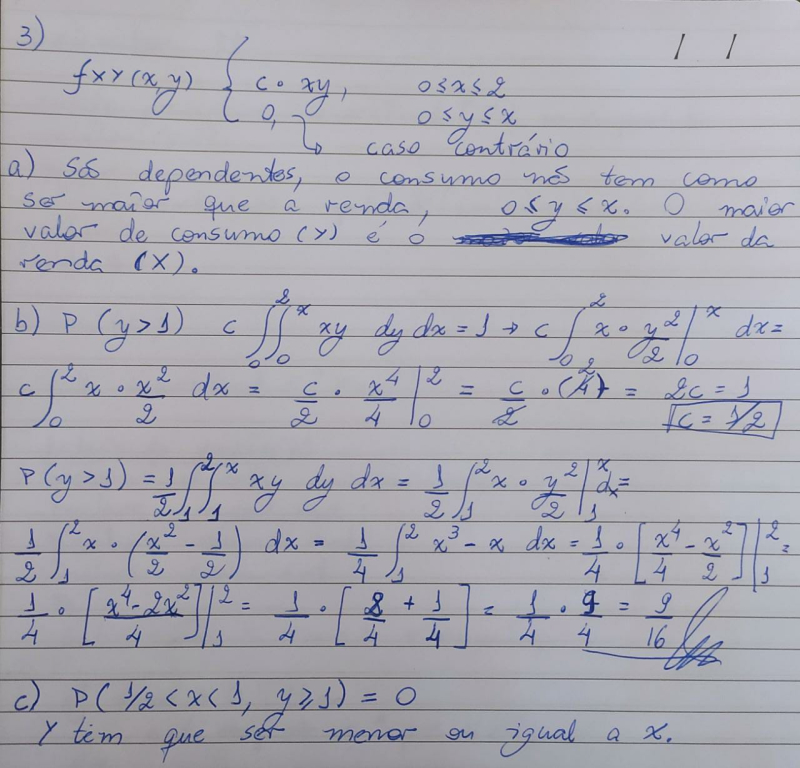 3)
fXY(x,y) { c · xy, 0 ≤ x ≤ 2
0, 0 ≤ y ≤ x
↳ caso contrário
a) São dependentes, o consumo não tem como
ser maior que a renda, 0 ≤ y ≤ x. O maior
valor de consumo (Y) é o valor da
renda (X).
b) P (y > 1) c ∫₀² ∫₀ˣ xy dy dx = 1 → c ∫₀² x · y²/2 |₀ˣ dx =
c ∫₀² x · x²/2 dx = c/2 · x⁴/4 |₀² = c/2 · (4) = 2c = 1
c = 1/2
P(y > 1) = 1/2 ∫₁² ∫₁ˣ xy dy dx = 1/2 ∫₁² x · y²/2 |₁ˣ dx =
1/2 ∫₁² x · (x²/2 - 1/2) dx = 1/4 ∫₁² x³ - x dx = 1/4 · [x⁴/4 - x²/2] |₁² =
1/4 · [(x⁴ - 2x²)/4] |₁² = 1/4 · [8/4 + 1/4] = 1/4 · 9/4 = 9/16
c) P(1/2 < x < 1, y ≥ 1) = 0
Y tem que ser menor ou igual a x.